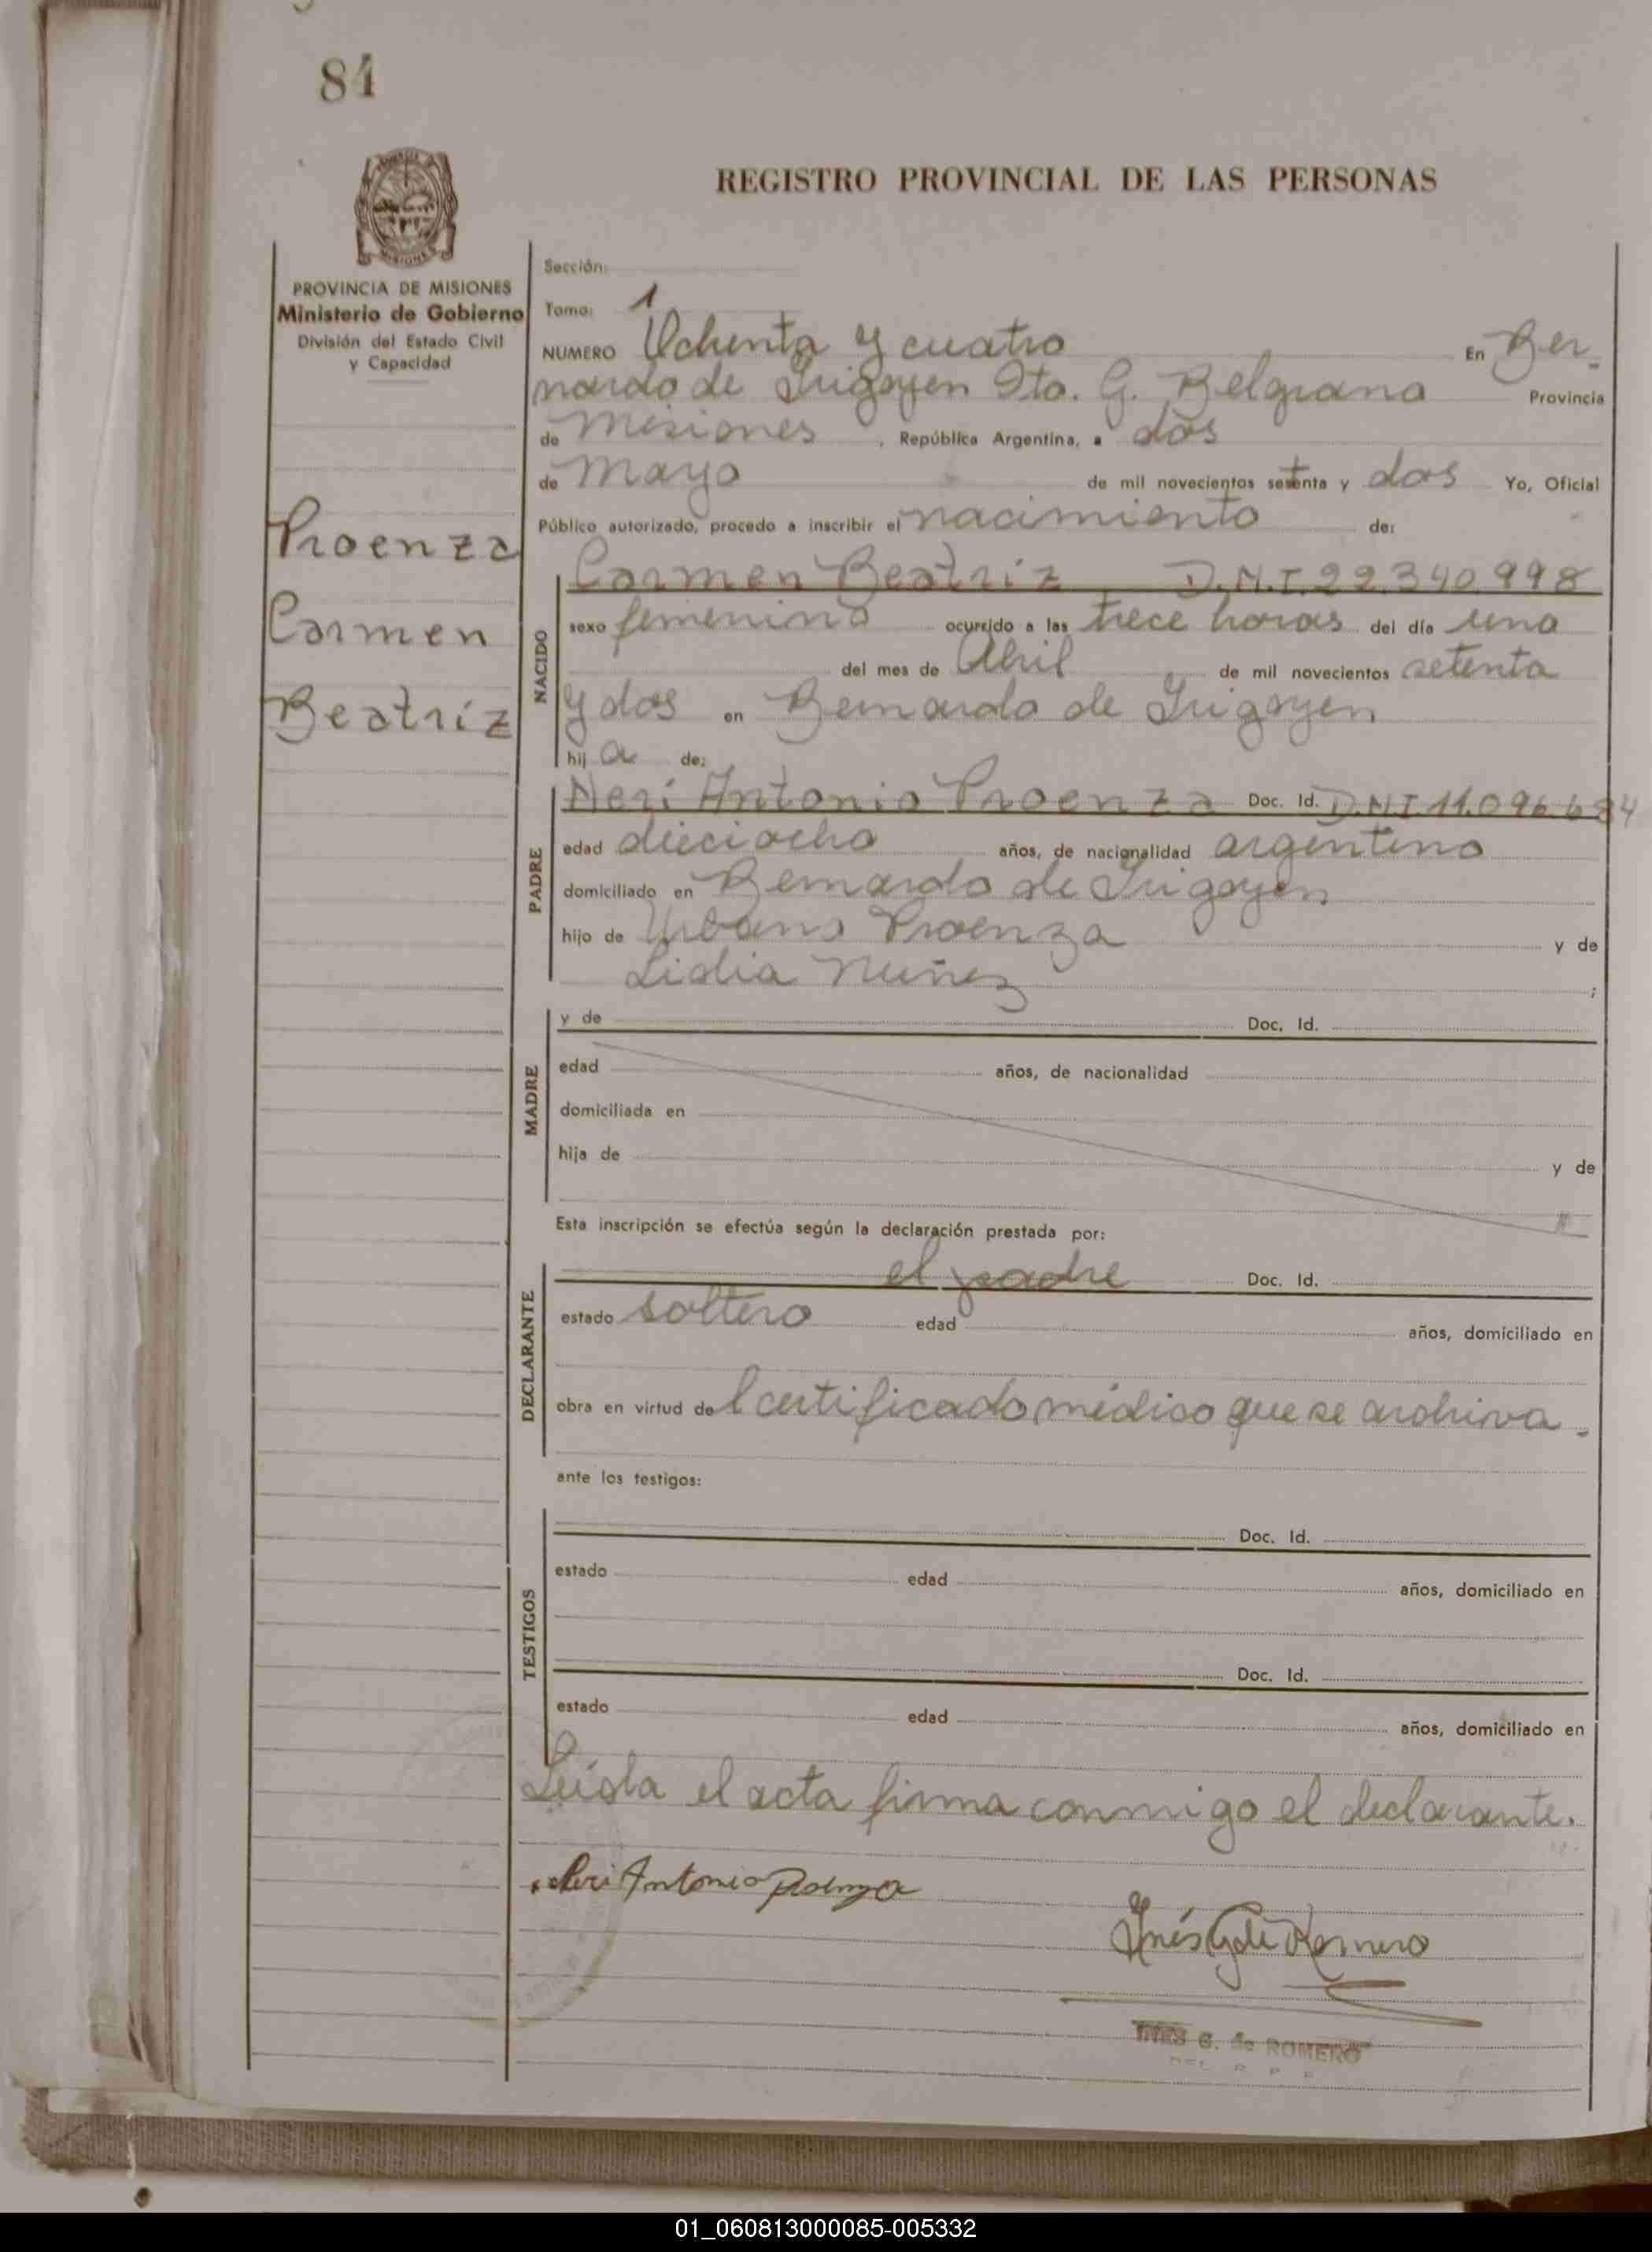 84
REGISTRO PROVINCIAL DE LAS PERSONAS
PROVINCIA DE MISIONES
Ministerio de Gobierno
División del Estado Civil
y Capacidad
Proenza
Carmen
Beatríz
Sección:
Tomo: 1
NUMERO Ochenta y cuatro En Ber-
nardo de Irigoyen Dto. G. Belgrano Provincia
de Misiones , República Argentina, a dos
de Mayo de mil novecientos setenta y dos Yo, Oficial
Público autorizado, procedo a inscribir el nacimiento de:
NACIDO
Carmen Beatríz D.N.I 22.340.998
sexo femenino ocurrido a las trece horas del día uno
del mes de Abril de mil novecientos setenta
y dos en Bernardo de Irigoyen
hij a de:
PADRE
Neri Antonio Proenza Doc. Id. D.N.I 11.096.684
edad dieciocho años, de nacionalidad argentino
domiciliado en Bernardo de Irigoyen
hijo de Urbano Proenza y de
Lidia Nuñez ;
MADRE
y de Doc. Id.
edad años, de nacionalidad
domiciliada en
hija de y de
Esta inscripción se efectúa según la declaración prestada por:
DECLARANTE
el padre Doc. Id.
estado soltero edad años, domiciliado en
obra en virtud del certificado médico que se archiva.
ante los testigos:
TESTIGOS
Doc. Id.
estado edad años, domiciliado en
Doc. Id.
estado edad años, domiciliado en
Leída el acta firma conmigo el declarante.
Neri Antonio Proenza
Inés G de Romero
INES G. de ROMERO
01_060813000085-005332